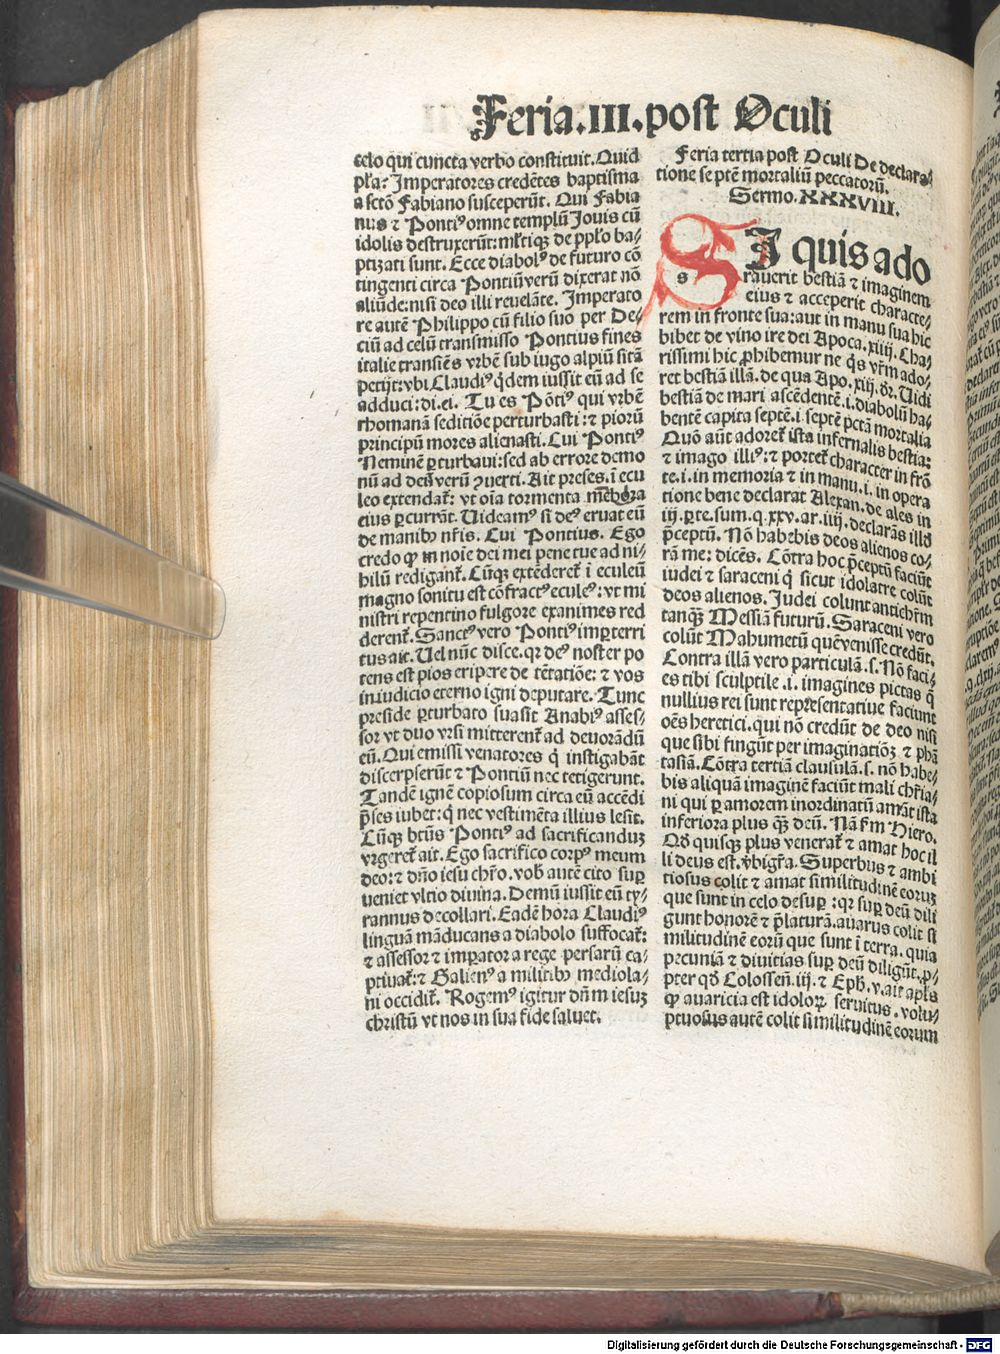 Feria.III.post Oculi
celo qui cuncta verbo constituit. Quid
pl̃a: Imperatores credẽtes baptisma
a sctõ Fabiano susceperũt. Qui Fabia
nus ⁊ Pontiꝰ omne templũ Jouis cũ
idolis destruxerũt: ml̃tiqꝫ de pp̃lo ba-
ptizati sunt. Ecce diabolꝰ de futuro cõ
tingenti circa Pontiũ verũ dixerat nõ
aliũde: nisi deo illi reuelãte. Imperato
re autẽ Philippo cũ filio suo per De-
ciũ ad celũ transmisso Pontius fines
italie transiẽs vrbẽ sub iugo alpiũ sitã
petijt: vbi Claudiꝰ q̇dem iussit eũ ad se
adduci: di. ei. Tu es Põtiꝰ qui vrbẽ
rhomanã seditiõe perturbasti: ⁊ piorũ
principũ mores alienasti. Cui Pontiꝰ
Neminẽ ꝑturbaui: sed ab errore demo
nũ ad deũ verũ ꝯuerti. Ait preses. i ecu
leo extendat̃: vt oĩa tormenta mẽbra
eius ꝑcurrãt. Uideamꝰ si deꝰ eruat eũ
de manibꝰ nr̃is. Cui Pontius. Ego
credo ꝙ in noĩe dei mei pene tue ad ni-
hilũ redigant̃. Cũqꝫ extẽderet̃ i eculeũ
magno sonitu est cõfractꝰ eculeꝰ: vt mi
nistri repentino fulgore exanimes red
derent̃. Sanctꝰ vero Pontiꝰ imꝑterri
tus ait. Uel nũc disce. qꝛ deꝰ noster po
tens est pios eripere de tẽtatiõe: ⁊ vos
in iudicio eterno igni deputare. Tunc
preside ꝑturbato suasit Anabiꝰ asses-
sor vt duo vrsi mitterent̃ ad deuorãdũ
eũ. Qui emissi venatores q̇ instigabãt
discerpserũt ⁊ Pontiũ nec tetigerunt.
Tandẽ ignẽ copiosum circa eũ accẽdi
p̃ses iubet: q̇ nec vestimẽta illius lesit.
Cũqꝫ btũs Pontiꝰ ad sacrificanduꝫ
vrgeret̃ ait. Ego sacrifico corpꝰ meum
deo: ⁊ dño iesu chr̃o. vob̃ autẽ cito suꝑ
ueniet vltio diuina. Demũ iussit eũ ty-
rannus decollari. Eadẽ hora Claudiꝰ
linguã mãducans a diabolo suffocat̃:
⁊ assessor ⁊ imꝑator a rege persarũ ca-
ptiuat̃: ⁊ Galienꝰ a militibꝰ mediola-
ni occidit̃. Rogemꝰ igitur dñm iesuꝫ
christũ vt nos in sua fide saluet.
Feria tertia post Oculi De declara-
tione septẽ mortaliũ peccatorũ.
Sermo. XXXVIII.
SI quis ado
s
rauerit bestiã ⁊ imaginem
eius ⁊ acceperit characte-
rem in fronte sua: aut in manu sua hic
bibet de vino ire dei Apoca. xiiij. Cha-
rissimi hic ꝓhibemur ne q̇s vr̃m ado-
ret bestiã illã. de qua Apo. xiij. dr̃. Uidi
bestiã de mari ascẽdentẽ. i. diabolũ ha-
bentẽ capita septẽ. i. septẽ pctã mortalia
Quõ aũt adoret̃ ista infernalis bestia:
⁊ imago illiꝰ: ⁊ portet̃ character in frõ
te. i. in memoria ⁊ in manu. i. in opera
tione bene declarat Alexan. de ales in
iij. ꝑte. sum. q. xxv. ar. iiij. declarãs illd̃
p̃ceptũ. Nõ habebis deos alienos co-
rã me: dicẽs. Cõtra hoc p̃ceptũ faciũt
iudei ⁊ saraceni q̇ sicut idolatre colũt
deos alienos. Judei colunt antichr̃m
tanqꝫ̃ Messiã futurũ. Saraceni vero
colũt Mahumetũ quẽ venisse credũt.
Contra illã vero particulã. s. Nõ faci-
es tibi sculptile. i. imagines pictas q̃
nullius rei sunt representatiue faciunt
oẽs heretici. qui nõ credũt de deo nisi
que sibi fingũt per imaginatiõꝫ ⁊ phã
tasiã. Cõtra tertiã clausulã. s. nõ habe-
bis aliquã imaginẽ faciũt mali chr̃ia-
ni qui ꝑ amorem inordinatũ amãt ista
inferiora plus qꝫ̃ deũ. Nã fm Hiero.
Qd̃ quisqꝫ plus venerat̃ ⁊ amat hoc il
li deus est. v̾bigr̃a. Superbus ⁊ ambi
tiosus colit ⁊ amat similitudinẽ eoruꝫ
que sunt in celo desuꝑ: qꝛ suꝑ deũ dili
gunt honorẽ ⁊ p̃laturã. auarus colit si
militudinẽ eorũ que sunt i terra. quia
pecuniã ⁊ diuitias suꝑ deũ diligũt. ꝓ-
pter qd̃ Colossen̄. iij. ⁊ Eph̃. v. ait apl̃s
ꝙ auaricia est idoloꝝ seruitus. volu-
ptuosus autẽ colit similitudinẽ eorum
Digitalisierung gefördert durch die Deutsche Forschungsgemeinschaft - DFG